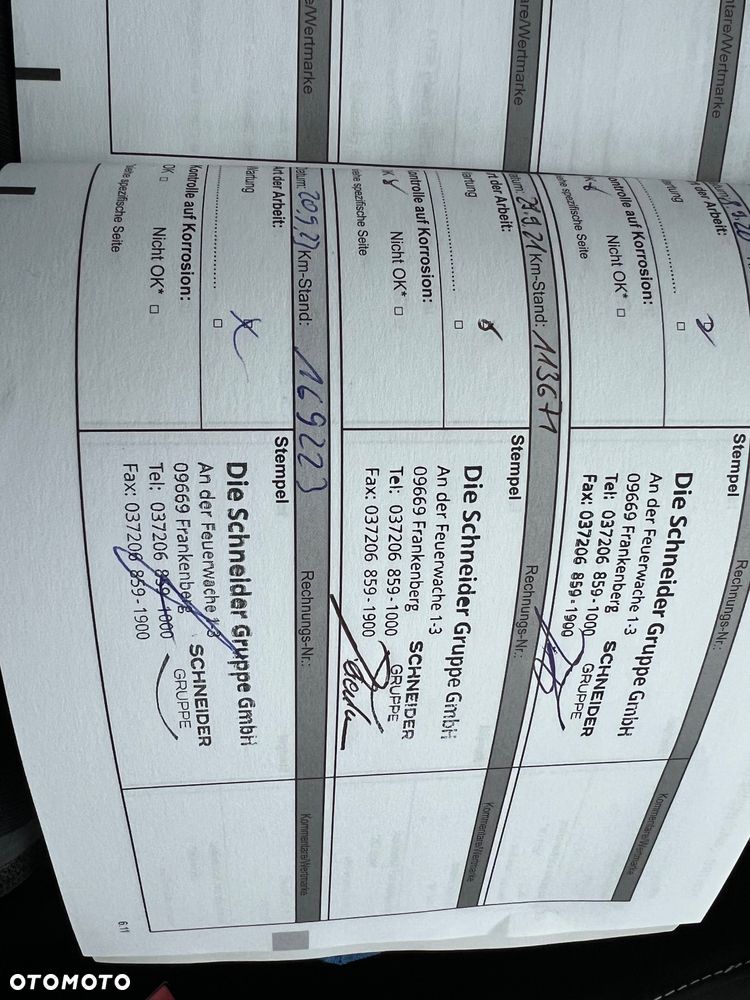 ntare/Wertmarke
are/Wertmarke
e/Wertmarke
9.20
Rechnungs-Nr.:
Kommentare/Wertmarke
t der Arbeit:
artung
ontrolle auf Korrosion:
Nicht OK*
ehe spezifische Seite
Stempel
Die Schneider Gruppe GmbH
An der Feuerwache 1-3
09669 Frankenberg
Tel: 037206 859-1000
Fax: 037206 859-1900
SCHNEIDER
GRUPPE
atum: 29.9.21 Km-Stand: 113671
Rechnungs-Nr.:
Kommentare/Wertmarke
rt der Arbeit:
artung
ontrolle auf Korrosion:
K Nicht OK*
ehe spezifische Seite
Stempel
Die Schneider Gruppe GmbH
An der Feuerwache 1-3
09669 Frankenberg
Tel: 037206 859-1000
Fax: 037206 859-1900
SCHNEIDER
GRUPPE
atum: 20.9.22 Km-Stand: 169223
Rechnungs-Nr.:
Kommentare/Wertmarke
Art der Arbeit:
Wartung
Kontrolle auf Korrosion:
OK Nicht OK*
iehe spezifische Seite
Stempel
Die Schneider Gruppe GmbH
An der Feuerwache 1-3
09669 Frankenberg
Tel: 037206 859-1000
Fax: 037206 859-1900
SCHNEIDER
GRUPPE
6.11
OTOMOTO